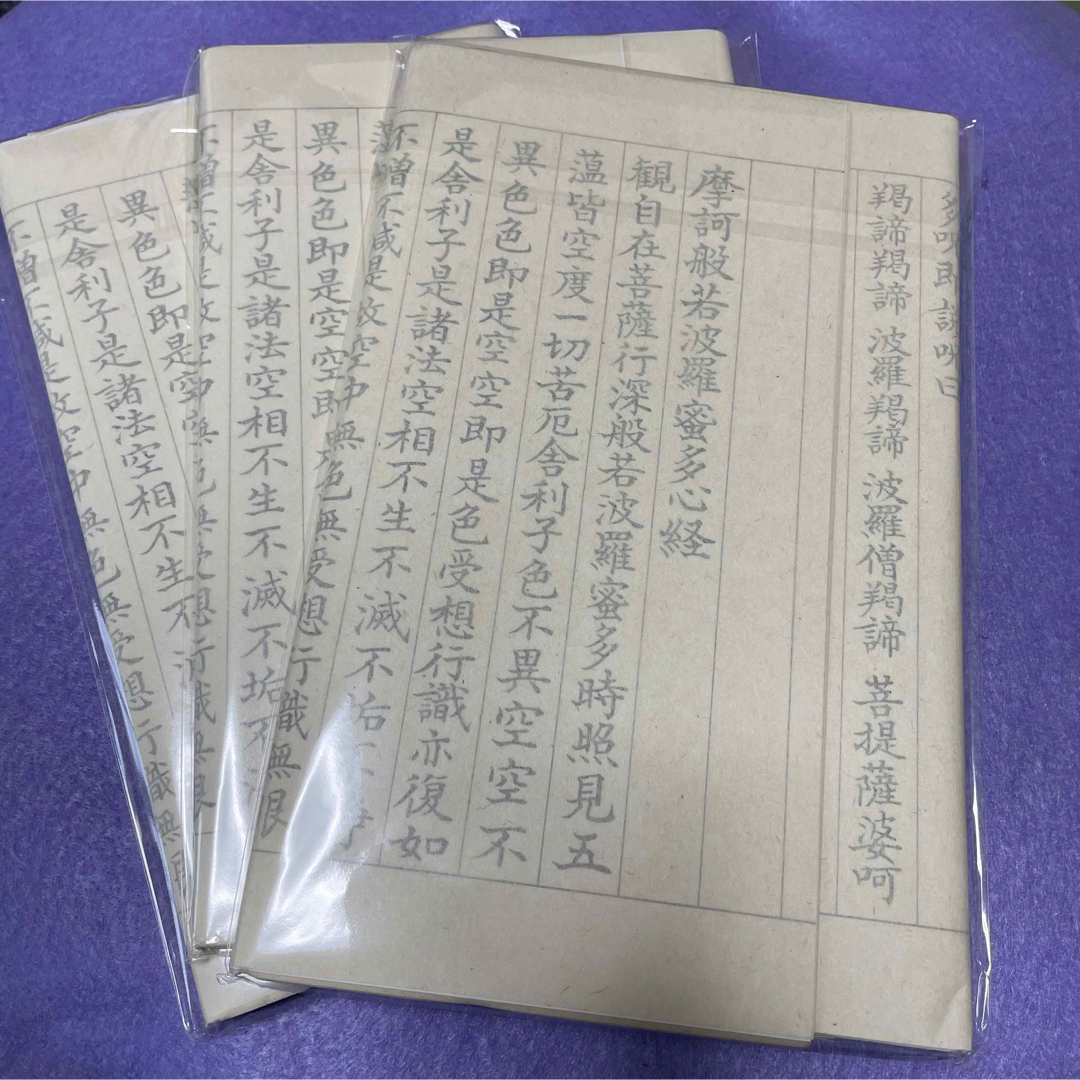 多呪即説呪曰
羯諦羯諦 波羅羯諦 波羅僧羯諦 菩提薩婆呵
摩訶般若波羅蜜多心経
観自在菩薩行深般若波羅蜜多時照見五
蘊皆空度一切苦厄舎利子色不異空空不
異色色即是空空即是色受想行識亦復如
是舎利子是諸法空相不生不滅不垢不
不増不減是故空中無色無受想行識無眼
異色色即是空空即是
是舎利子是諸法空相不生不滅不垢不
不増不減是故空中無色無受想行識無眼
異色色即是空
是舎利子是諸法空相不生不
不増不減是故空中無色無受想行識無眼